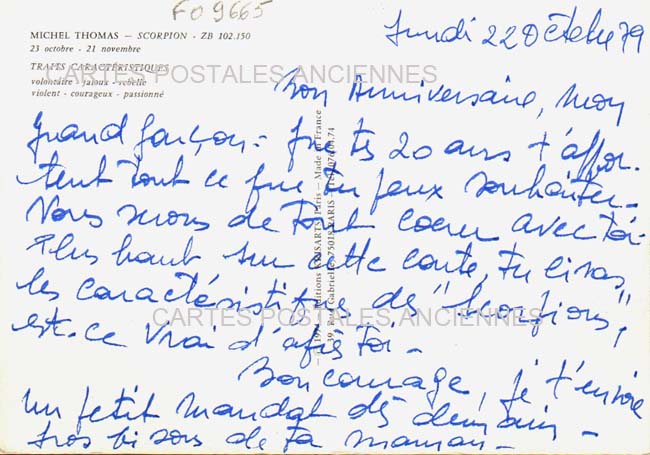 FO 9665
MICHEL THOMAS – SCORPION - ZB 102.150
23 octobre - 21 novembre
TRAITS CARACTÉRISTIQUES
volontaire - jaloux - rebelle
violent - courageux - passionné
Lundi 22 Octobre 79
CARTES POSTALES ANCIENNES
Bon Anniversaire, mon
grand garçon - que tes 20 ans t'appor-
tent tout ce que tu peux souhaiter -
Nous serons de tout coeur avec toi -
Plus haut sur cette carte, tu liras
les caractéristiques des "Scorpions",
est-ce vrai d'après toi -
CARTES POSTALES ANCIENNES
Bon courage, je t'envoie
un petit mandat dès demain -
Gros bisous de ta maman -
Éditions KRISARTS Paris – Made in France
39, Rue Gabrielle 75018 PARIS